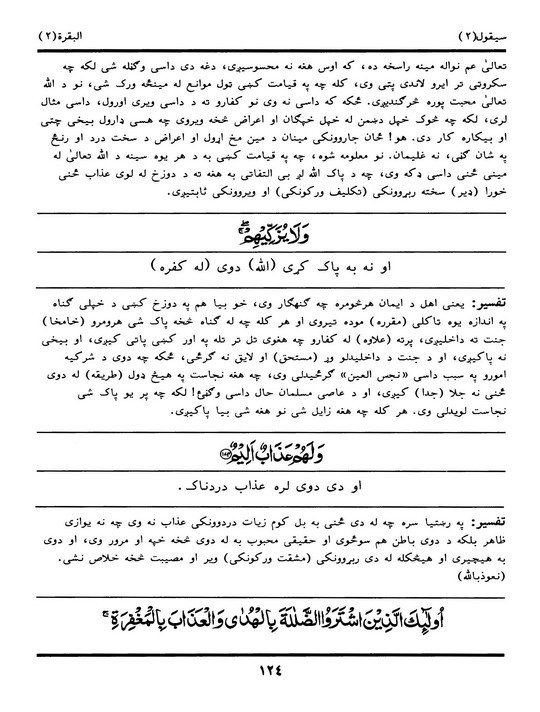 سيقول(٢)
البقرة(٢)
تعالیٰ عم نواله مينه راسخه ده، که اوس هغه نه محسوسيږي، دغه دی داسی وګڼله شی لکه چه
سکروټی تر ايرو لاندی پټی وی، کله چه په قيامت کښی ټول موانع له مينځه ورک شی، نو د الله
تعالیٰ محبت پوره څرګنديږي. ځکه که داسی نه وی نو کفارو ته د داسی ويری اورول، داسی مثال
لری، لکه چه څوک خپل دښمن له خپل خپګان او اعراض څخه ويروی چه هسی ډارول بيخی چتی
او بيکاره کار دی. هو! ځان جاروونکی مينان د مين مخ اړول او اعراض د سخت درد او رنځ
په شان ګڼی، نه غليمان. نو معلومه شوه، چه په قيامت کښی به د هر يوه سينه د الله تعالیٰ له
مينی ځنی داسی ډکه وی، چه د پاک الله لږ بی التفاتی به هغه ته د دوزخ له لوی عذاب ځنی
خورا (ډير) سخته ربړوونکی (تکليف ورکونکی) او ويروونکی ثابتيږي.
وَلَا يُزَكِّيهِمْ ۚ
او نه به پاک کړی (الله) دوی (له کفره)
تفسير: يعنی اهل د ايمان هرڅومره چه ګنهګار وی، خو بيا هم په دوزخ کښی د خپلی ګناه
په اندازه يوه ټاکلی (مقرره) موده تيروی او هر کله چه له ګناه څخه پاک شی هرومرو (خامخا)
جنت ته داخليږي، پرته (علاوه) له کفارو چه هغوی تل تر تله په اور کښی پاتی کيږي، او بيخی
نه پاکيږي، او د جنت د داخليدلو وړ (مستحق) او لايق نه ګرځی، ځکه چه دوی د شرکيه
امورو په سبب داسی «نجس العين» ګرځيدلی وی، چه هغه نجاست په هيڅ ډول (طريقه) له دوی
ځنی نه جلا (جدا) کيږي، او د عاصی مسلمان حال داسی وګڼئ! لکه چه پر يو پاک شی
نجاست لويدلی وی. هر کله چه هغه زايل شی نو هغه شی بيا پاکيږي.
وَلَهُمْ عَذَابٌ أَلِيمٌ ﴿١٧٤﴾
او دی دوی لره عذاب دردناک.
تفسير: په رښتيا سره چه له دی ځنی به بل کوم زيات دردوونکی عذاب نه وی چه نه يوازی
ظاهر بلکه د دوی باطن هم سوځوی او حقيقی محبوب به له دوی څخه خپه او مرور وی، او دوی
به هيچيری او هيڅکله له دی ربړوونکی (مشقت ورکونکی) وير او مصيبت څخه خلاص نشی.
(نعوذبالله)
أُولَٰئِكَ الَّذِينَ اشْتَرَوُا الضَّلَالَةَ بِالْهُدَىٰ وَالْعَذَابَ بِالْمَغْفِرَةِ ۚ
١٢٤